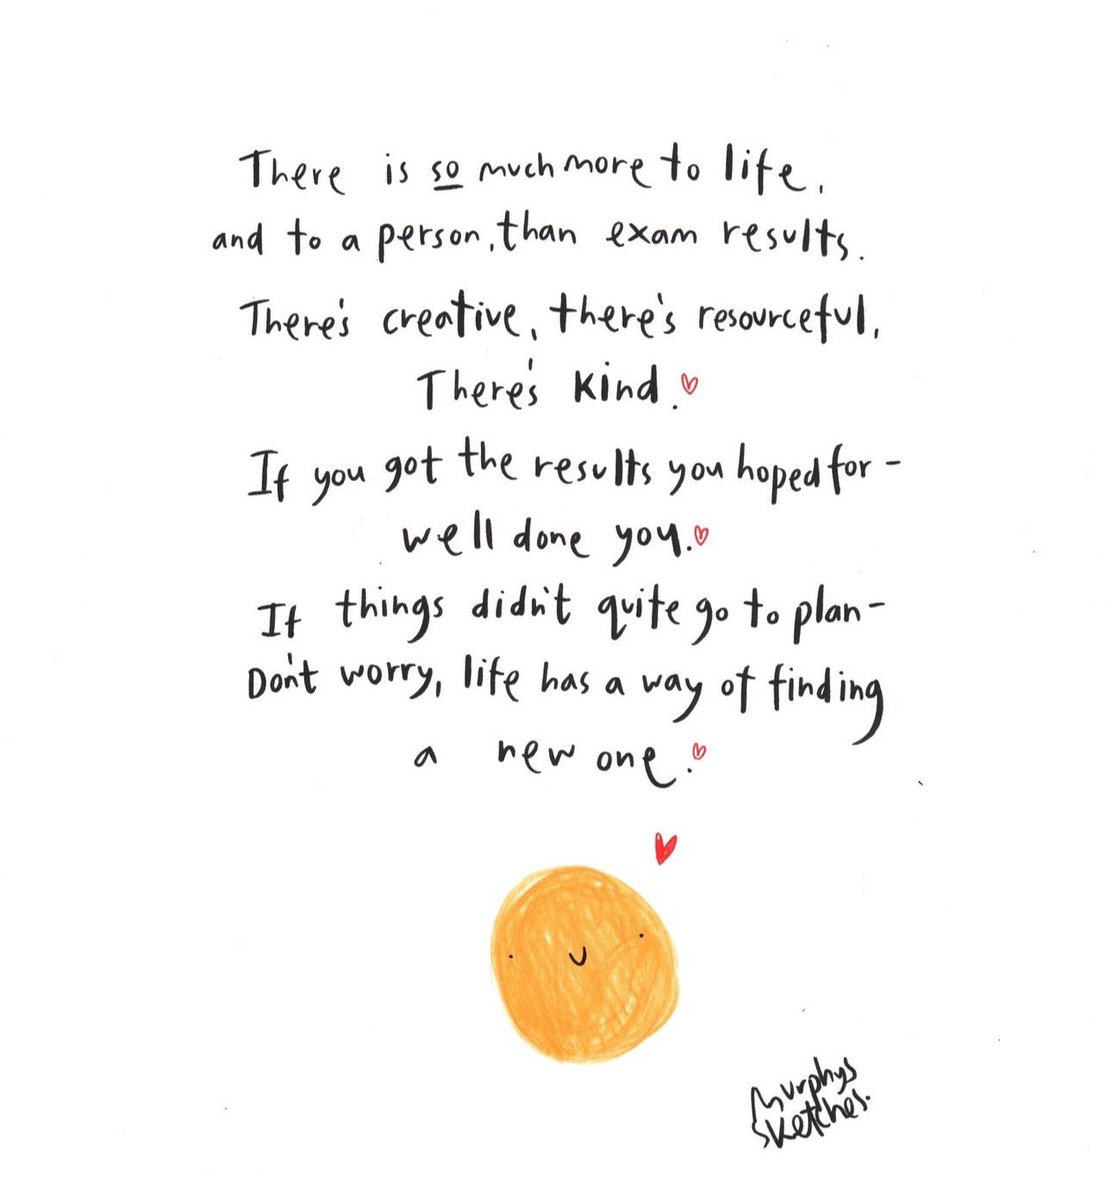 There is so much more to life,
and to a person, than exam results.
There's creative, there's resourceful,
There's kind.
If you got the results you hoped for -
well done you.
If things didn't quite go to plan -
Don't worry, life has a way of finding
a new one.
Murphys
Sketches.